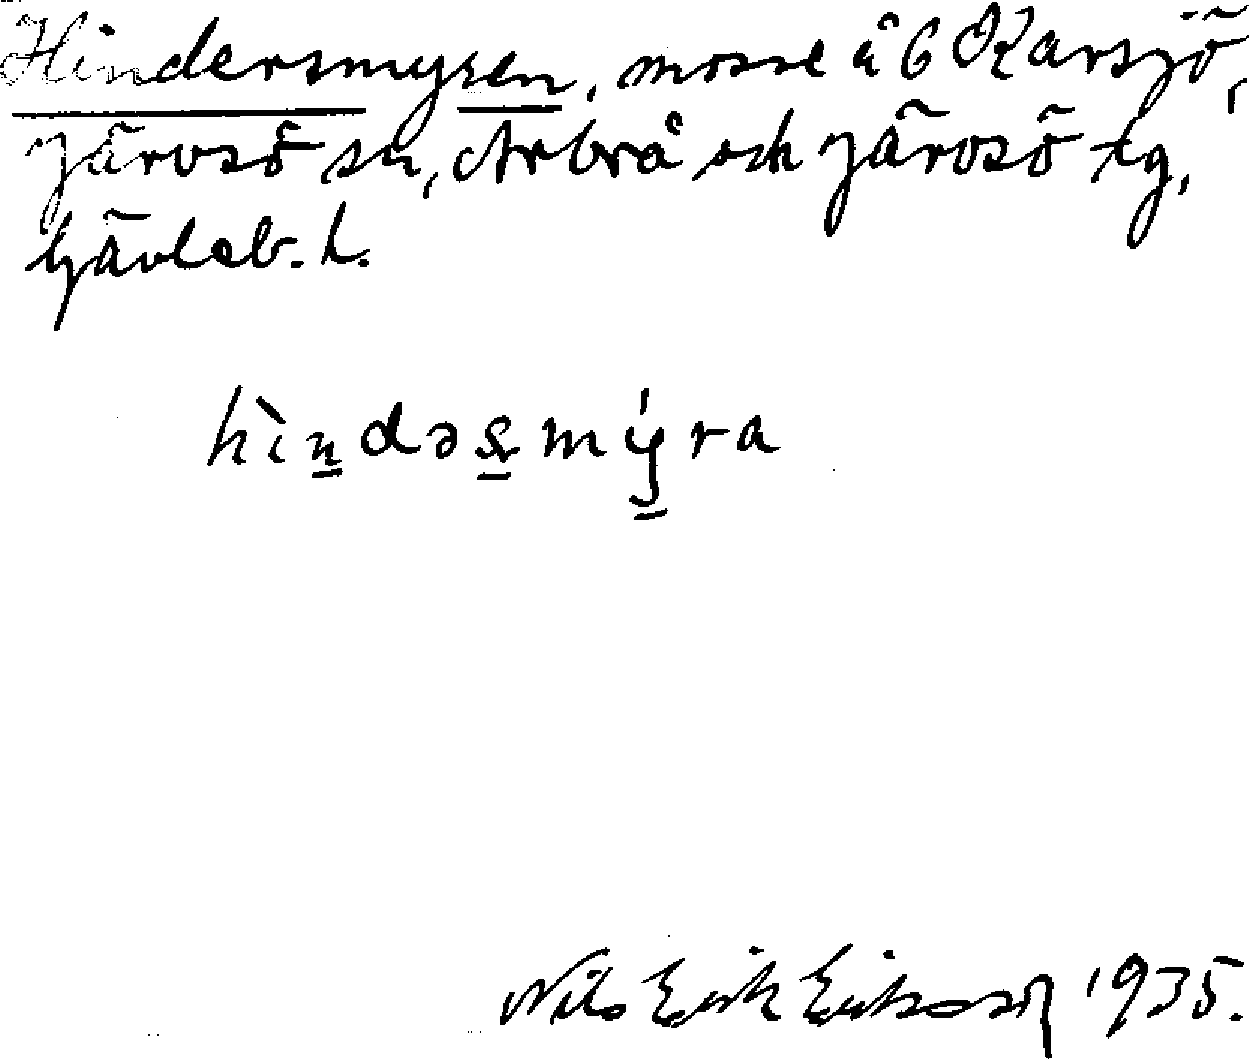 Hindersmyren, mosse å 6 Karsjö,
Järvsö sn, Arbrå och Järvsö tg,
Gävleb. l.
hìndəsmýra
Nils Erik Eriksson 1935.